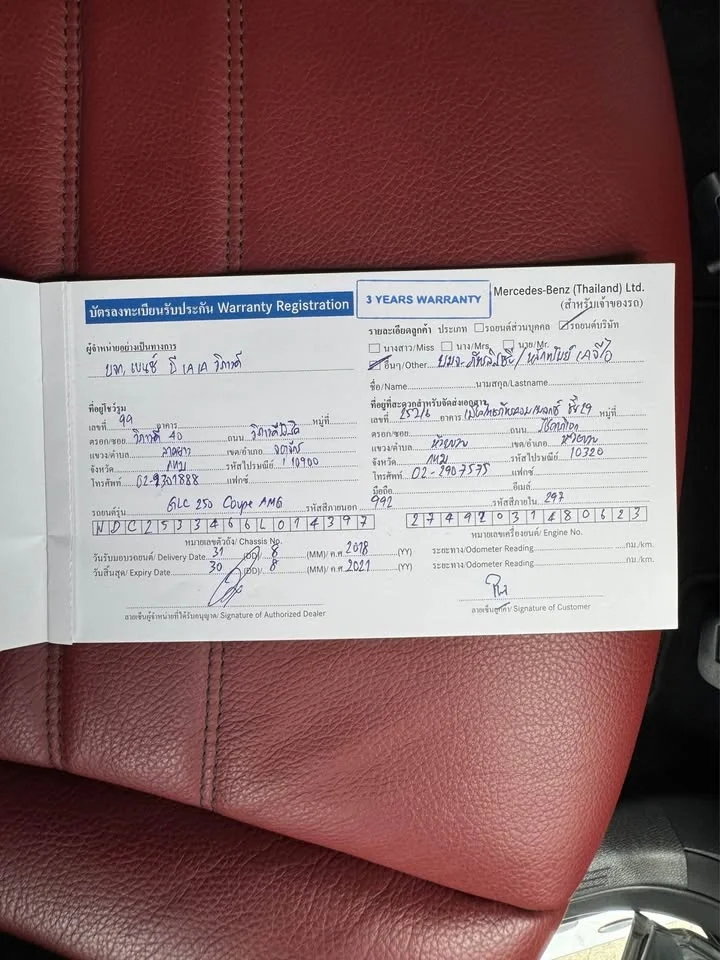 บัตรลงทะเบียนรับประกัน Warranty Registration
3 YEARS WARRANTY
Mercedes-Benz (Thailand) Ltd.
(สำหรับเจ้าของรถ)
ผู้จำหน่ายอย่างเป็นทางการ
บจก. เบนซ์ บี เค เค วิภาวดี
ที่อยู่โชว์รูม
เลขที่ 99 อาคาร หมู่ที่
ตรอก/ซอย วิภาวดี 40 ถนน วิภาวดีรังสิต
แขวง/ตำบล ลาดยาว เขต/อำเภอ จตุจักร
จังหวัด กทม รหัสไปรษณีย์ 10900
โทรศัพท์ 02-9301888 แฟกซ์
รายละเอียดลูกค้า ประเภท รถยนต์ส่วนบุคคล รถยนต์บริษัท
นางสาว/Miss นาง/Mrs. นาย/Mr.
อื่นๆ/Other
ชื่อ/Name นามสกุล/Lastname
ที่อยู่ที่สะดวกสำหรับจัดส่งเอกสาร
เลขที่ 252/6 อาคาร ชั้น 29 หมู่ที่
ตรอก/ซอย ถนน รัชดาภิเษก
แขวง/ตำบล ห้วยขวาง เขต/อำเภอ ห้วยขวาง
จังหวัด กทม รหัสไปรษณีย์ 10320
โทรศัพท์ 02-2907575 แฟกซ์
มือถือ อีเมล์
รถยนต์รุ่น GLC 250 Coupe AMG รหัสสีภายนอก 992 รหัสสีภายใน 297
WDC2533466L014397
27492031480623
หมายเลขตัวถัง/ Chassis No.
หมายเลขเครื่องยนต์/ Engine No.
วันรับมอบรถยนต์/ Delivery Date 31 (DD)/ 8 (MM)/ ค.ศ 2018 (YY)
ระยะทาง/Odometer Reading กม./km.
วันสิ้นสุด/ Expiry Date 30 (DD)/ 8 (MM)/ ค.ศ 2021 (YY)
ระยะทาง/Odometer Reading กม./km.
ลายเซ็นผู้จำหน่ายที่ได้รับอนุญาต/ Signature of Authorized Dealer
ลายเซ็นลูกค้า/ Signature of Customer